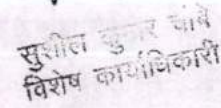 सुशील कुमार चांबे
विशेष कार्याधिकारी